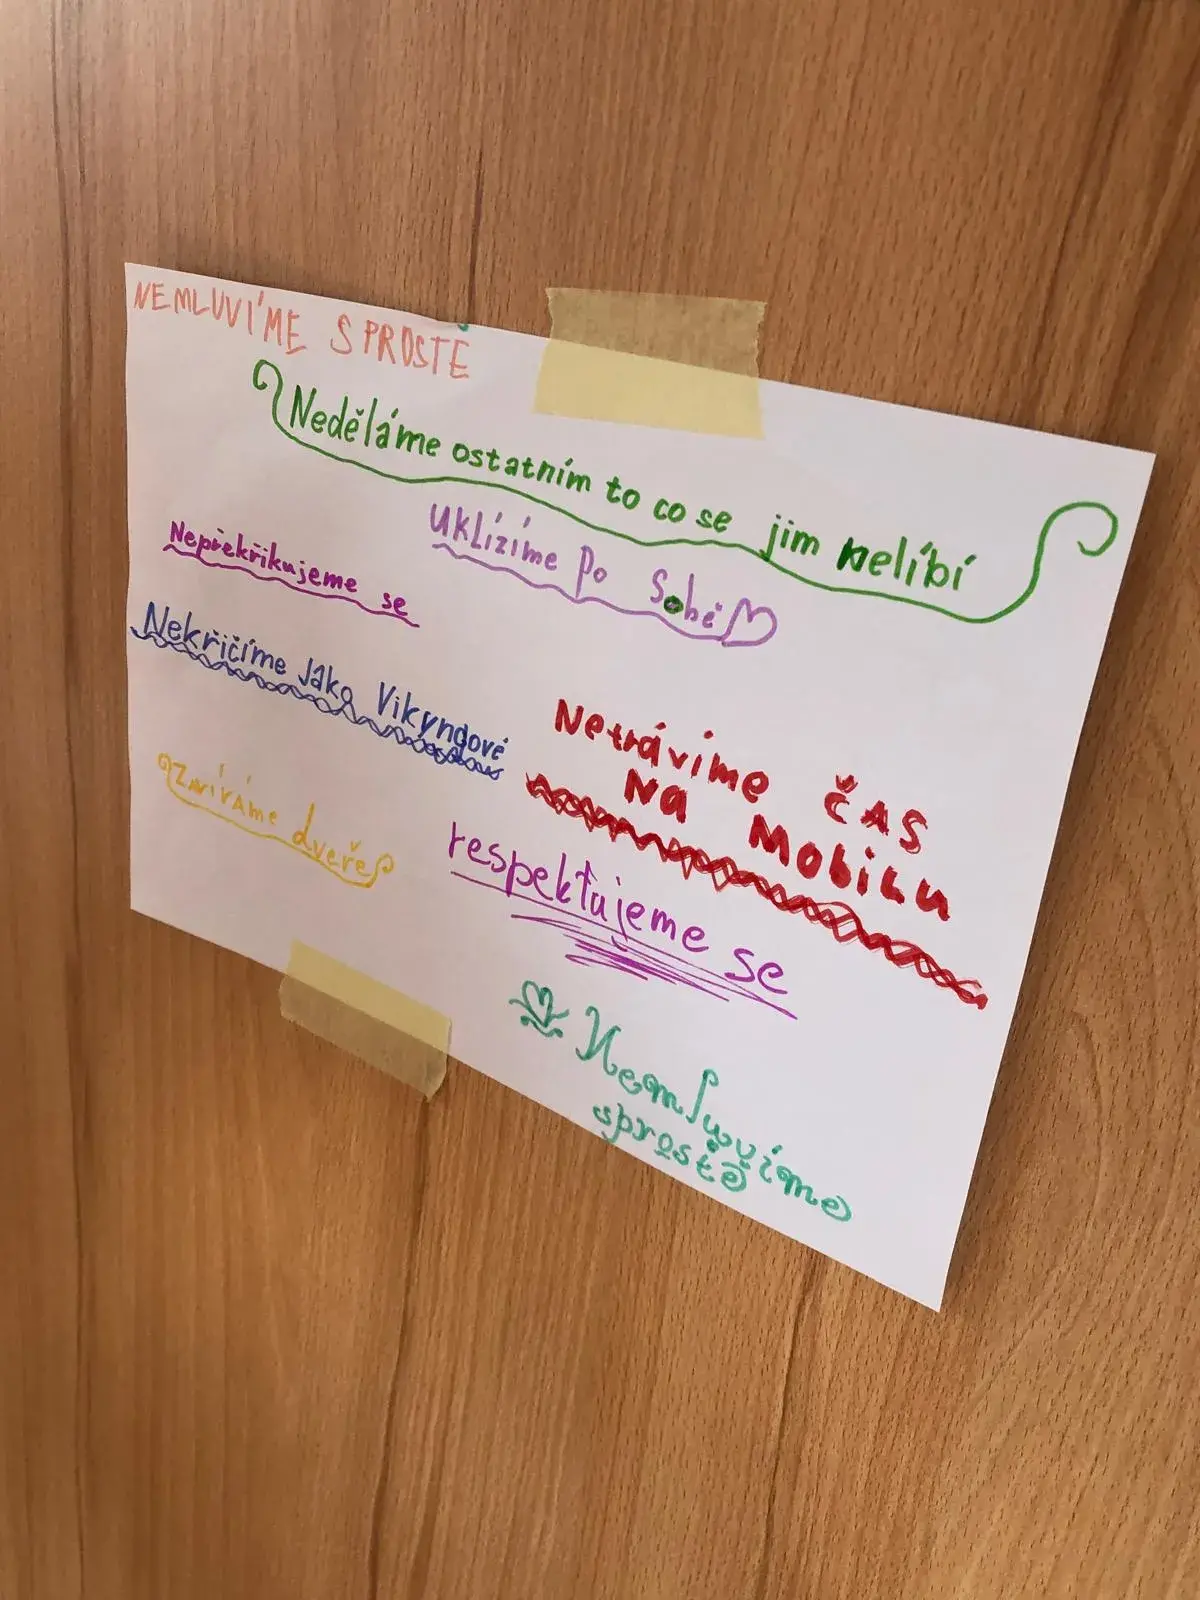 NEMLUVÍME SPROSTĚ
Neděláme ostatním to co se jim nelíbí
Uklízíme Po Sobě
Nepřekřikujeme se
Nekřičíme Jako Vikyndové
Netrávíme ČAS
NA MobiLu
Zavíráme dveře
respektujeme se
Nemluvíme
sprostě